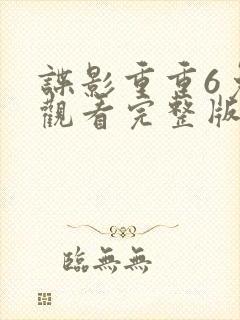 諜影重重6
觀看完整版
臨無無